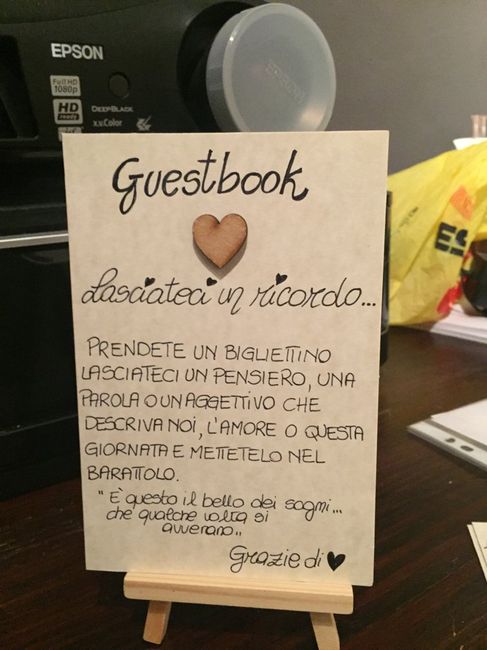 EPSON
Full HD
1080p
HD
ready
DEEPBLACK
x.v.Color
Guestbook
Lasciateci un ricordo...
PRENDETE UN BIGLIETTINO
LASCIATECI UN PENSIERO, UNA
PAROLA O UN AGGETTIVO CHE
DESCRIVA NOI, L'AMORE O QUESTA
GIORNATA E METTETELO NEL
BARATTOLO.
"È questo il bello dei sogni...
che qualche volta si
avverano"
Grazie di ♥